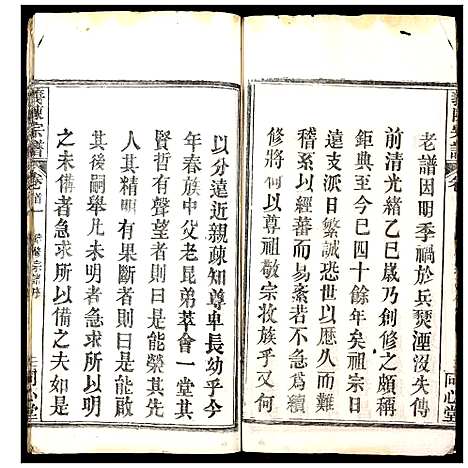 老譜因明季禍於兵燹湮沒失傳
前清光緒乙巳歲乃創修之頗稱
鉅典至今巳四十餘年矣祖宗日
遠支派日繁誠恐世以歷久而難
稽系以經蕃而易紊若不急於重
修將何以尊祖敬宗收族乎又何
同心堂
以分遠近親疎知尊卑長幼乎今
年春族中父老昆弟萃會一堂其
賢哲有聲望者則曰是能榮其先
人其精明有果斷者則曰是能啟
其後嗣舉凡未明者急求所以明
之未備者急求所以備之夫如是
義陳宗譜
卷首一
同心堂